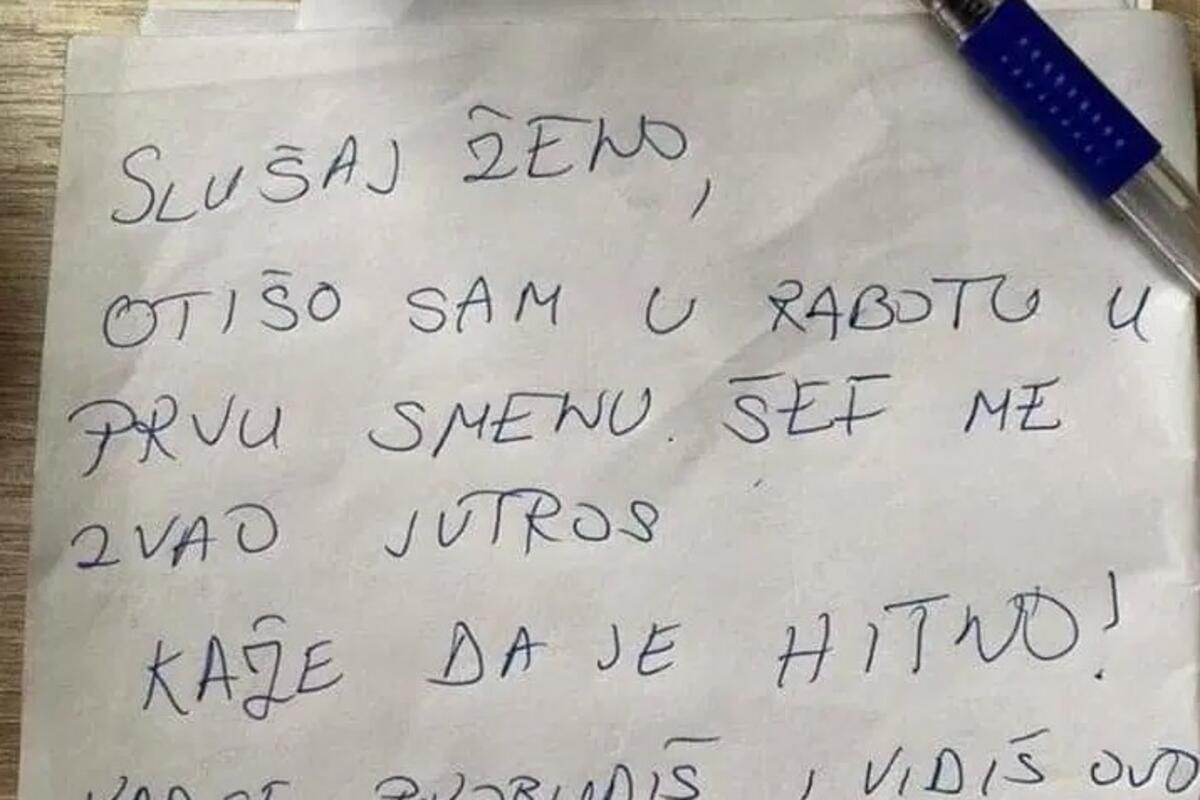 SLUŠAJ ŽENO,
OTIŠO SAM U RABOTU U
PRVU SMENU. ŠEF ME
ZVAO JUTROS
KAŽE DA JE HITNO!
I VIDIŠ OVO